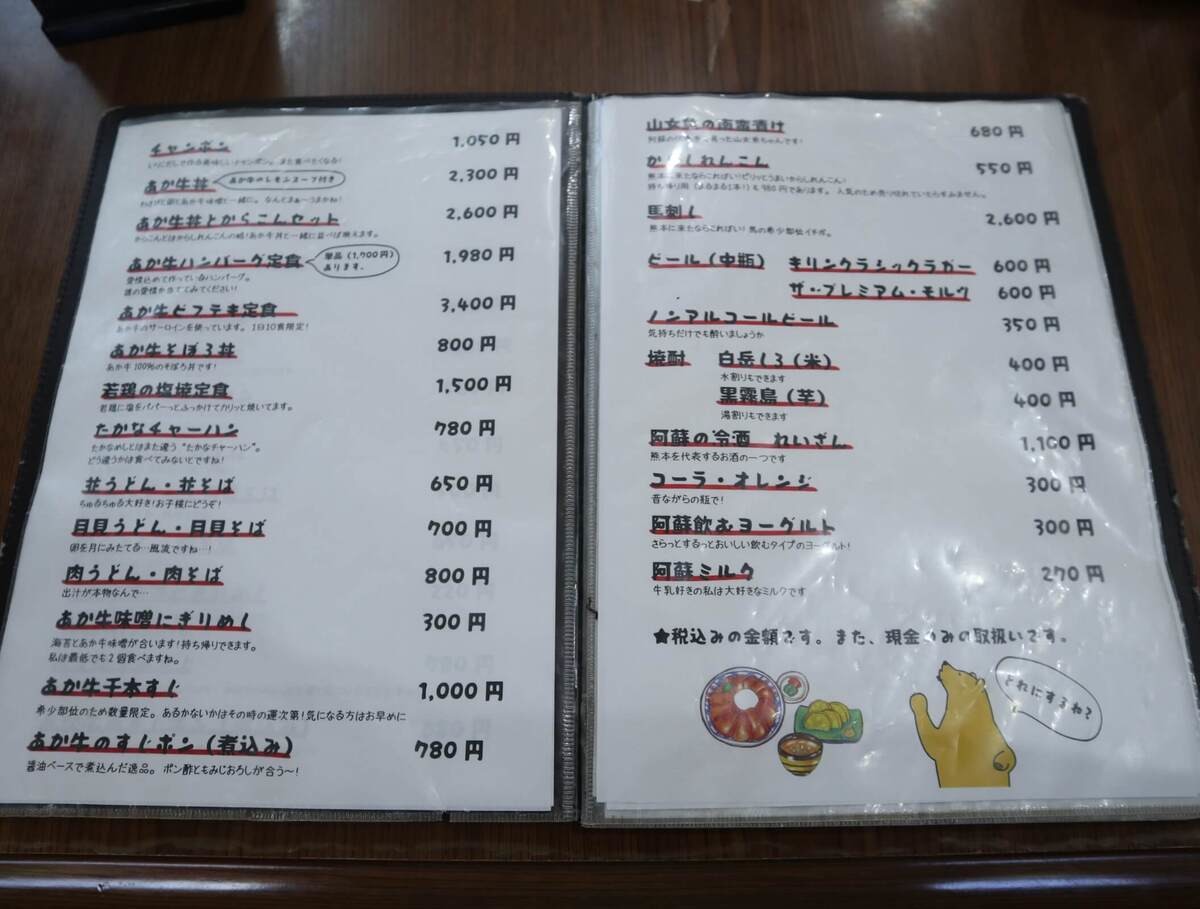 チャンポン 1,050円
いりこだしで作る美味しいチャンポン。また食べたくなる!
あか牛丼 あか牛のレモンスープ付き 2,300円
わさびと卵とあか牛味噌と一緒に。なんとまぁ〜うまかね!
あか牛丼とからこんセット 2,600円
からこんとはからしれんこんの略!あか牛丼と一緒に並べば映えます。
あか牛ハンバーグ定食 単品(1,700円) 1,980円
あります。
愛情込めて作っているハンバーグ。
誰の愛情か当ててみてください!
あか牛ビフテキ定食 3,400円
あか牛のサーロインを使っています。1日10食限定!
あか牛そぼろ丼 800円
あか牛100%のそぼろ丼です!
若鶏の塩焼定食 1,500円
若鶏に塩をパパーっとふっかけてカリッと焼いてます。
たかなチャーハン 780円
たかなめしとはまた違う“たかなチャーハン”。
どう違うかは食べてみないとですね!
並うどん・並そば 650円
ちゅるちゅる大好き!お子様にどうぞ!
月見うどん・月見そば 700円
卵を月にみたてる…風流ですね…!
肉うどん・肉そば 800円
出汁が本物なんで…
あか牛味噌にぎりめし 300円
海苔とあか牛味噌が合います!持ち帰りできます。
私は最低でも2個食べますね。
あか牛千本すじ 1,000円
希少部位のため数量限定。あるかないかはその時の運次第!気になる方はお早めに
あか牛のすじポン(煮込み) 780円
醤油ベースで煮込んだ逸品。ポン酢ともみじおろしが合う〜!
山女魚の南蛮漬け 680円
阿蘇の 育った山女魚ちゃんです!
からしれんこん 550円
熊本に来たならこればい!ピリッとうまいからしれんこん!
持ち帰り用(まるまる1本!)も980円であります。人気のため売り切れていたらすみません。
馬刺し 2,600円
熊本に来たならこればい!馬の希少部位イチボ。
ビール(中瓶) キリンクラシックラガー 600円
ザ・プレミアム・モルツ 600円
ノンアルコールビール 350円
気持ちだけでも酔いましょうか
焼酎 白岳しろ(米) 400円
水割りもできます
黒霧島(芋) 400円
湯割りもできます
阿蘇の冷酒 れいざん 1,100円
熊本を代表するお酒の一つです
コーラ・オレンジ 300円
昔ながらの瓶で!
阿蘇飲むヨーグルト 300円
さらっとするっとおいしい飲むタイプのヨーグルト!
阿蘇ミルク 270円
牛乳好きの私は大好きなミルクです
★税込みの金額です。また、現金のみの取扱いです。
どれにするね?